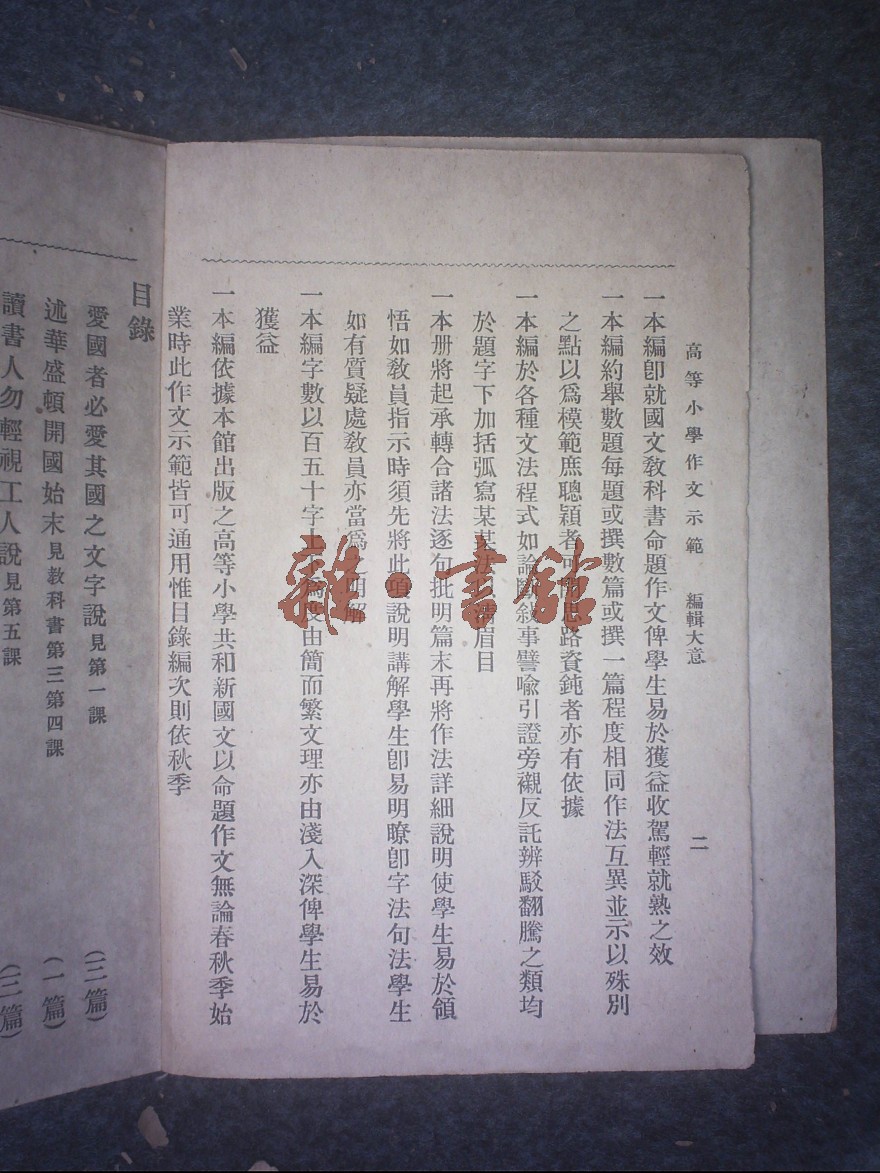 高等小學作文示範　編輯大意　二
一本編卽就國文敎科書命題作文俾學生易於獲益收駕輕就熟之效
一本編約舉數題每題或撰數篇或撰一篇程度相同作法互異並示以殊別
之點以爲模範庶聰穎者可 思路資鈍者亦有依據
一本編於各種文法程式如論 敍事譬喩引證旁襯反託辨駁翻騰之類均
於題字下加括弧寫某 眉目
一本册將起承轉合諸法逐句批明篇末再將作法詳細說明使學生易於領
悟如敎員指示時須先將此項說明講解學生卽易明瞭卽字法句法學生
如有質疑處敎員亦當爲 解
一本編字數以百五十字 度由簡而繁文理亦由淺入深俾學生易於
獲益
一本編依據本館出版之高等小學共和新國文以命題作文無論春秋季始
業時此作文示範皆可通用惟目錄編次則依秋季
目錄
愛國者必愛其國之文字說見第一課　(三篇)
述華盛頓開國始末見敎科書第三第四課　(一篇)
讀書人勿輕視工人說見第五課　(二篇)
雜·書館